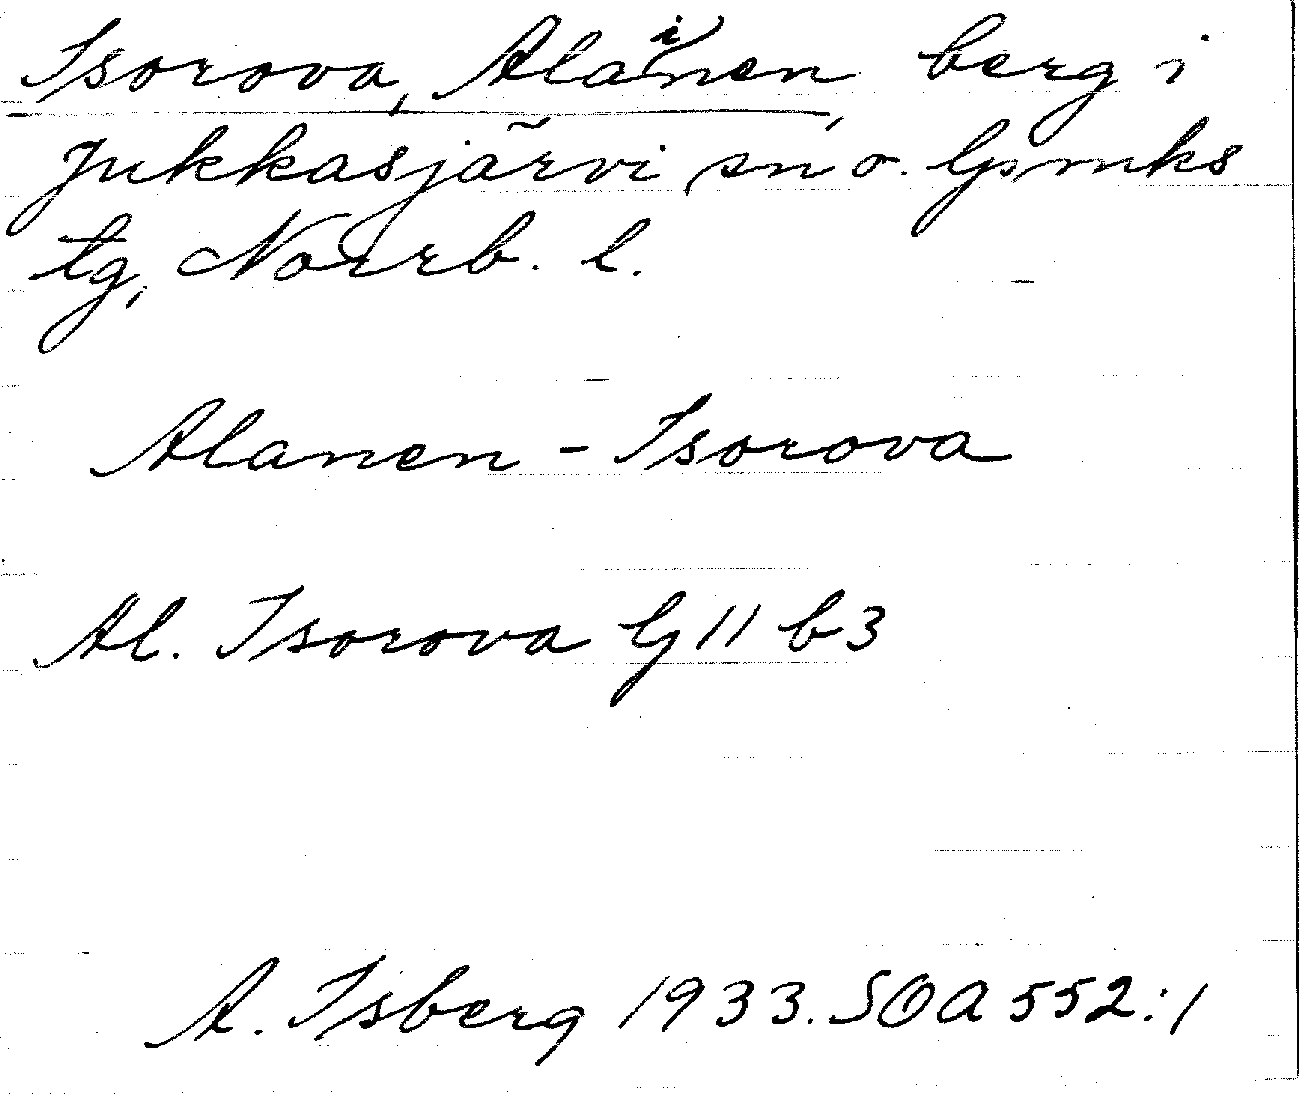 Isorova, Alainen, berg i
Jukkasjärvi sn o. lpmks
tg, Norrb. l.
Alanen - Isorova
Al. Isorova G 11 b 3
A. Isberg 1933. SOA 552:1